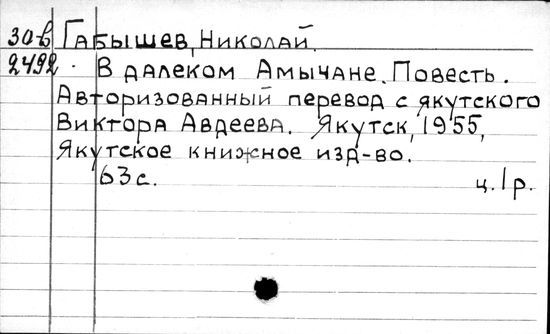 30-в Габышев, Николай.
2492 · В далеком Амычане. Повесть.
Авторизованный перевод с якутского
Виктора Авдеева. Якутск, 1955,
Якутское книжное изд-во.
63с. ц. 1 р.